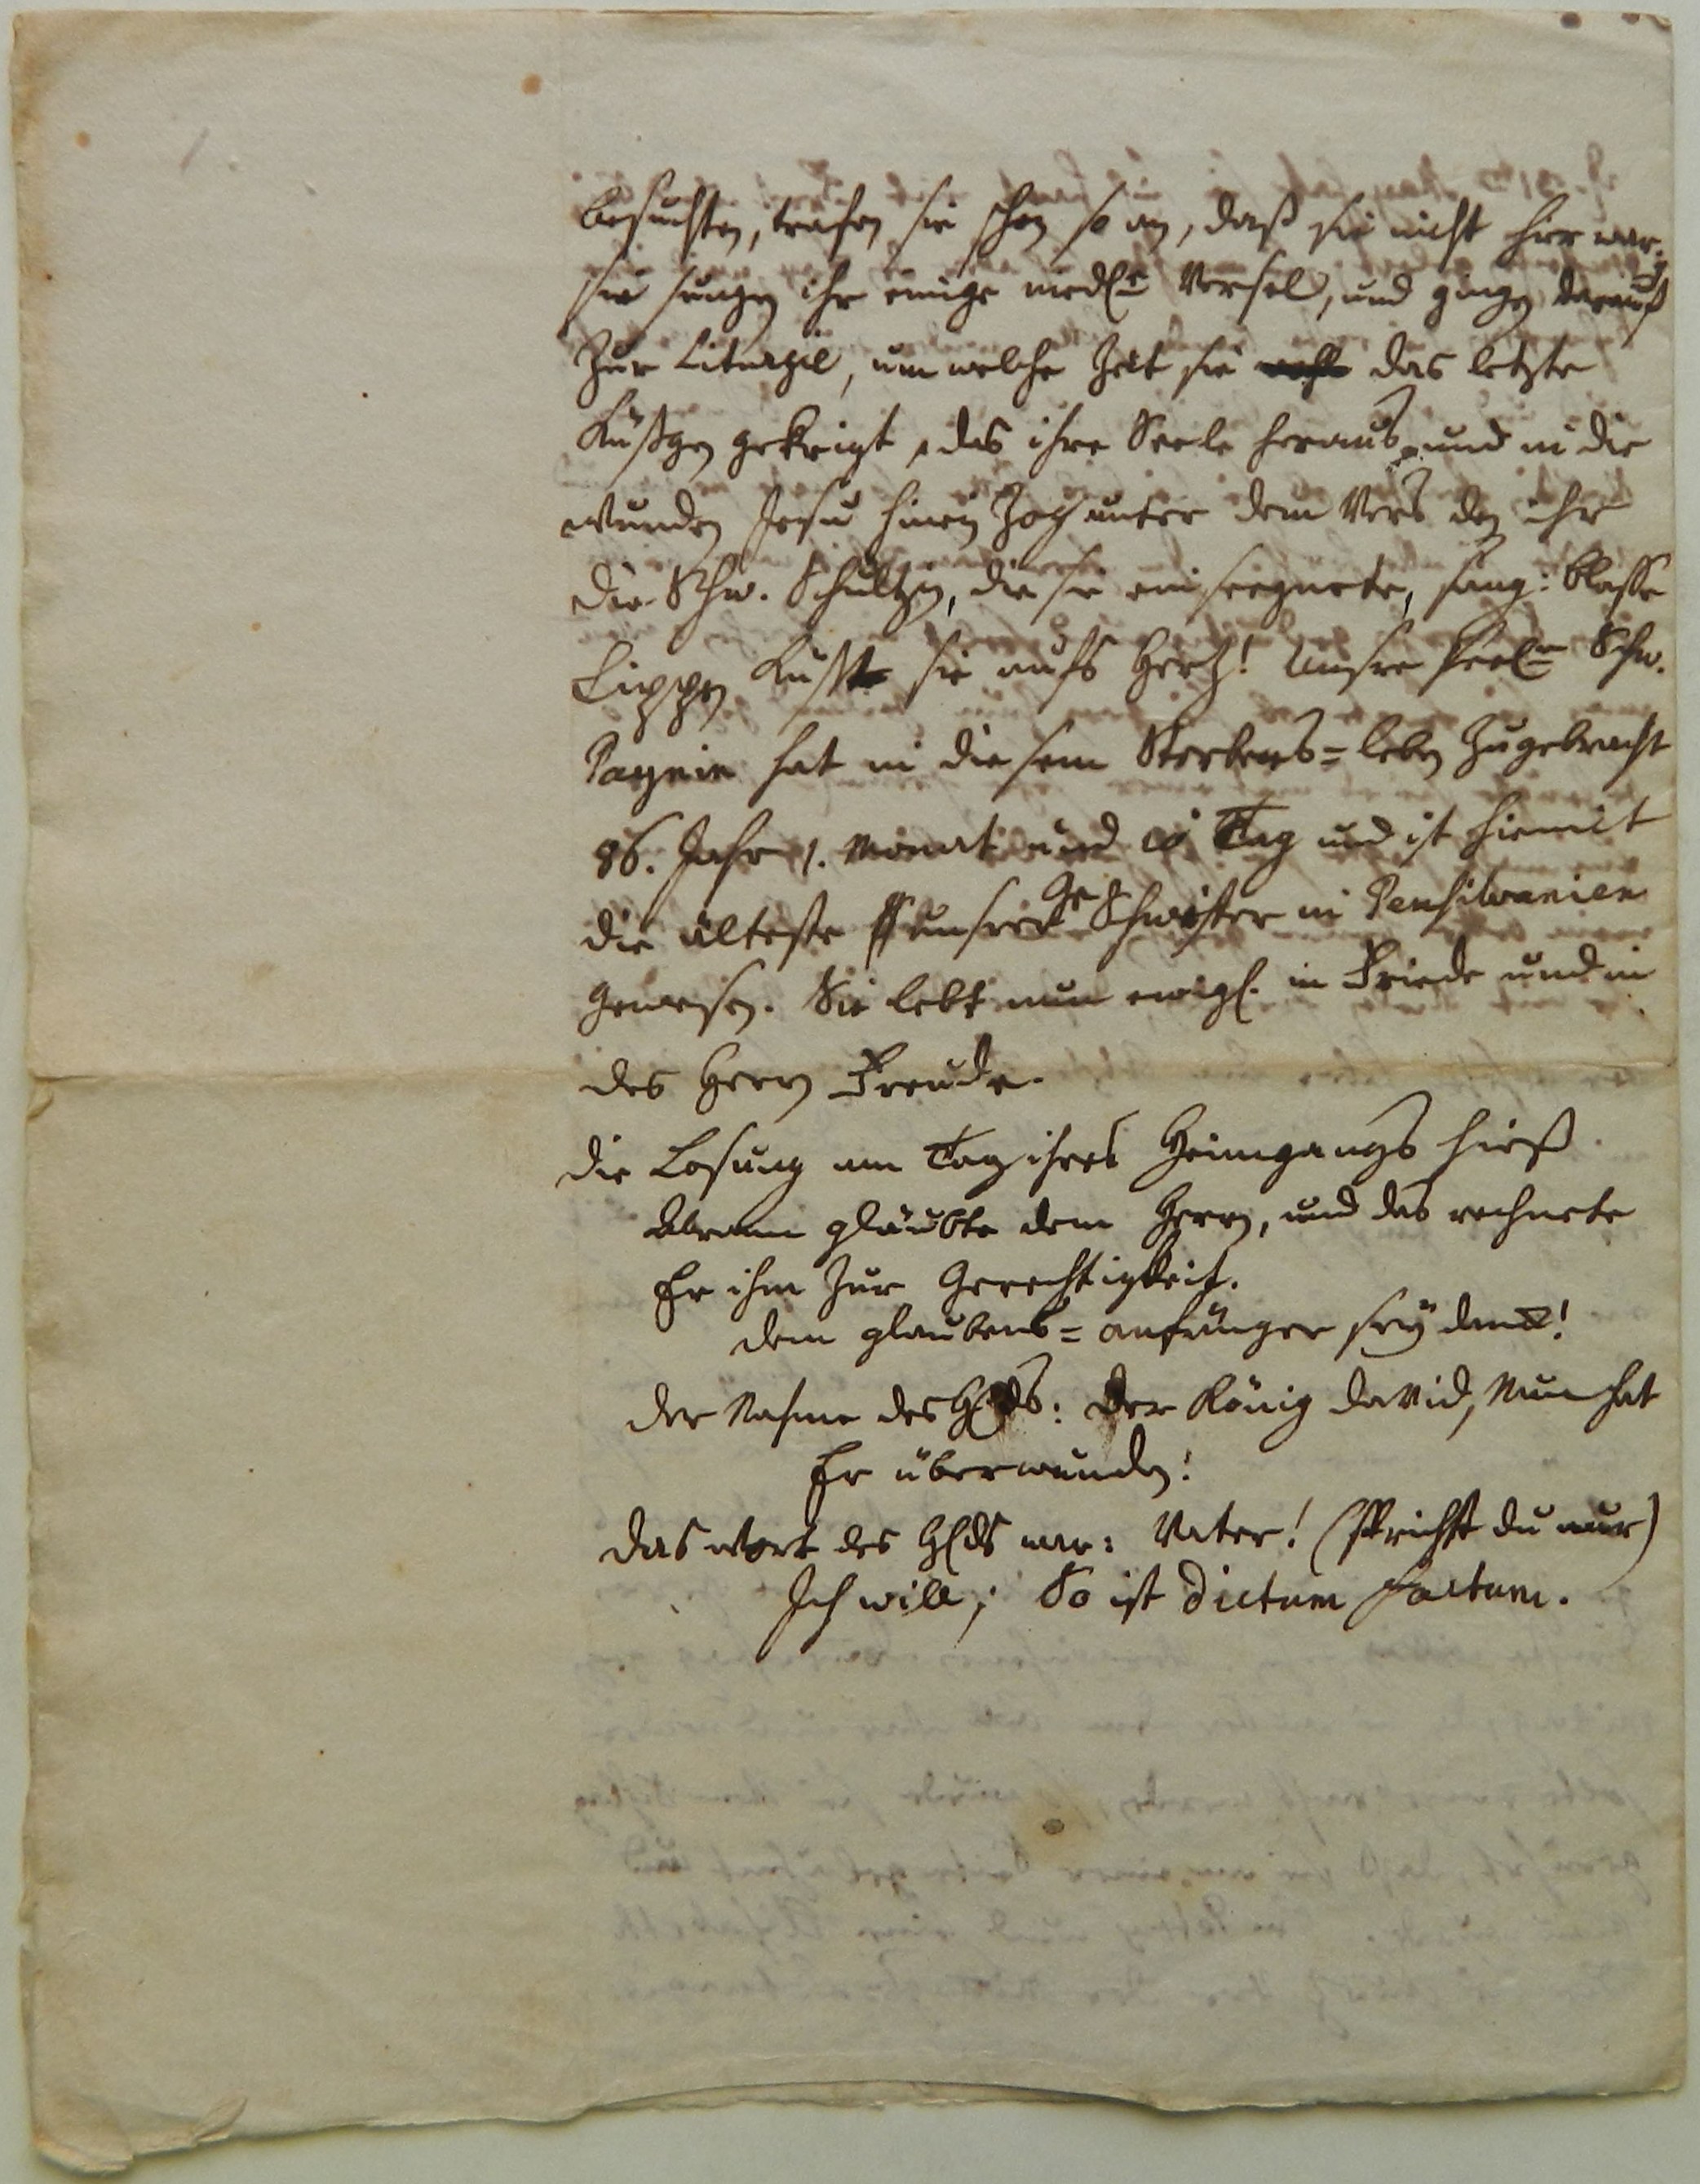 besuchten, trafen sie schon so an, daß sie nicht hier war.
sie sungen ihr einige niedl. Versel, und gingen darauf
Zur Liturgie, um welche Zeit sie das letzte
Küßgen gekrigt, das ihre Seele heraus, und in die
Wunden Jesu hinein zog unter dem Vers den ihr
die Schw. Schultzin, die sie einseegnete, sang: blasse
Lippen Küßt sie aufs Hertz! Unsre seel. Schw.
hat in diesem Sterbens=leben Zugebracht
86. Jahr 1. Monat und Tag und ist hiemit
die älteste unsrer Geschwister in Pensilvanien
gewesen. Sie lebt nun ewigl. in Friede und in
des Herrn Freude.
die Losung am Tag ihres Heimgangs hieß.
Abram gläubte dem Herrn, und das rechnete
Er ihm Zur Gerechtigkeit.
dem glaubens=anfänger sey danck!
der Nahme des Hlds: Der König David, Nun hat
Er überwunden!
das Wort des Hlds war: Vater! (sprichst du nur)
Ich will; So ist dictum factum.